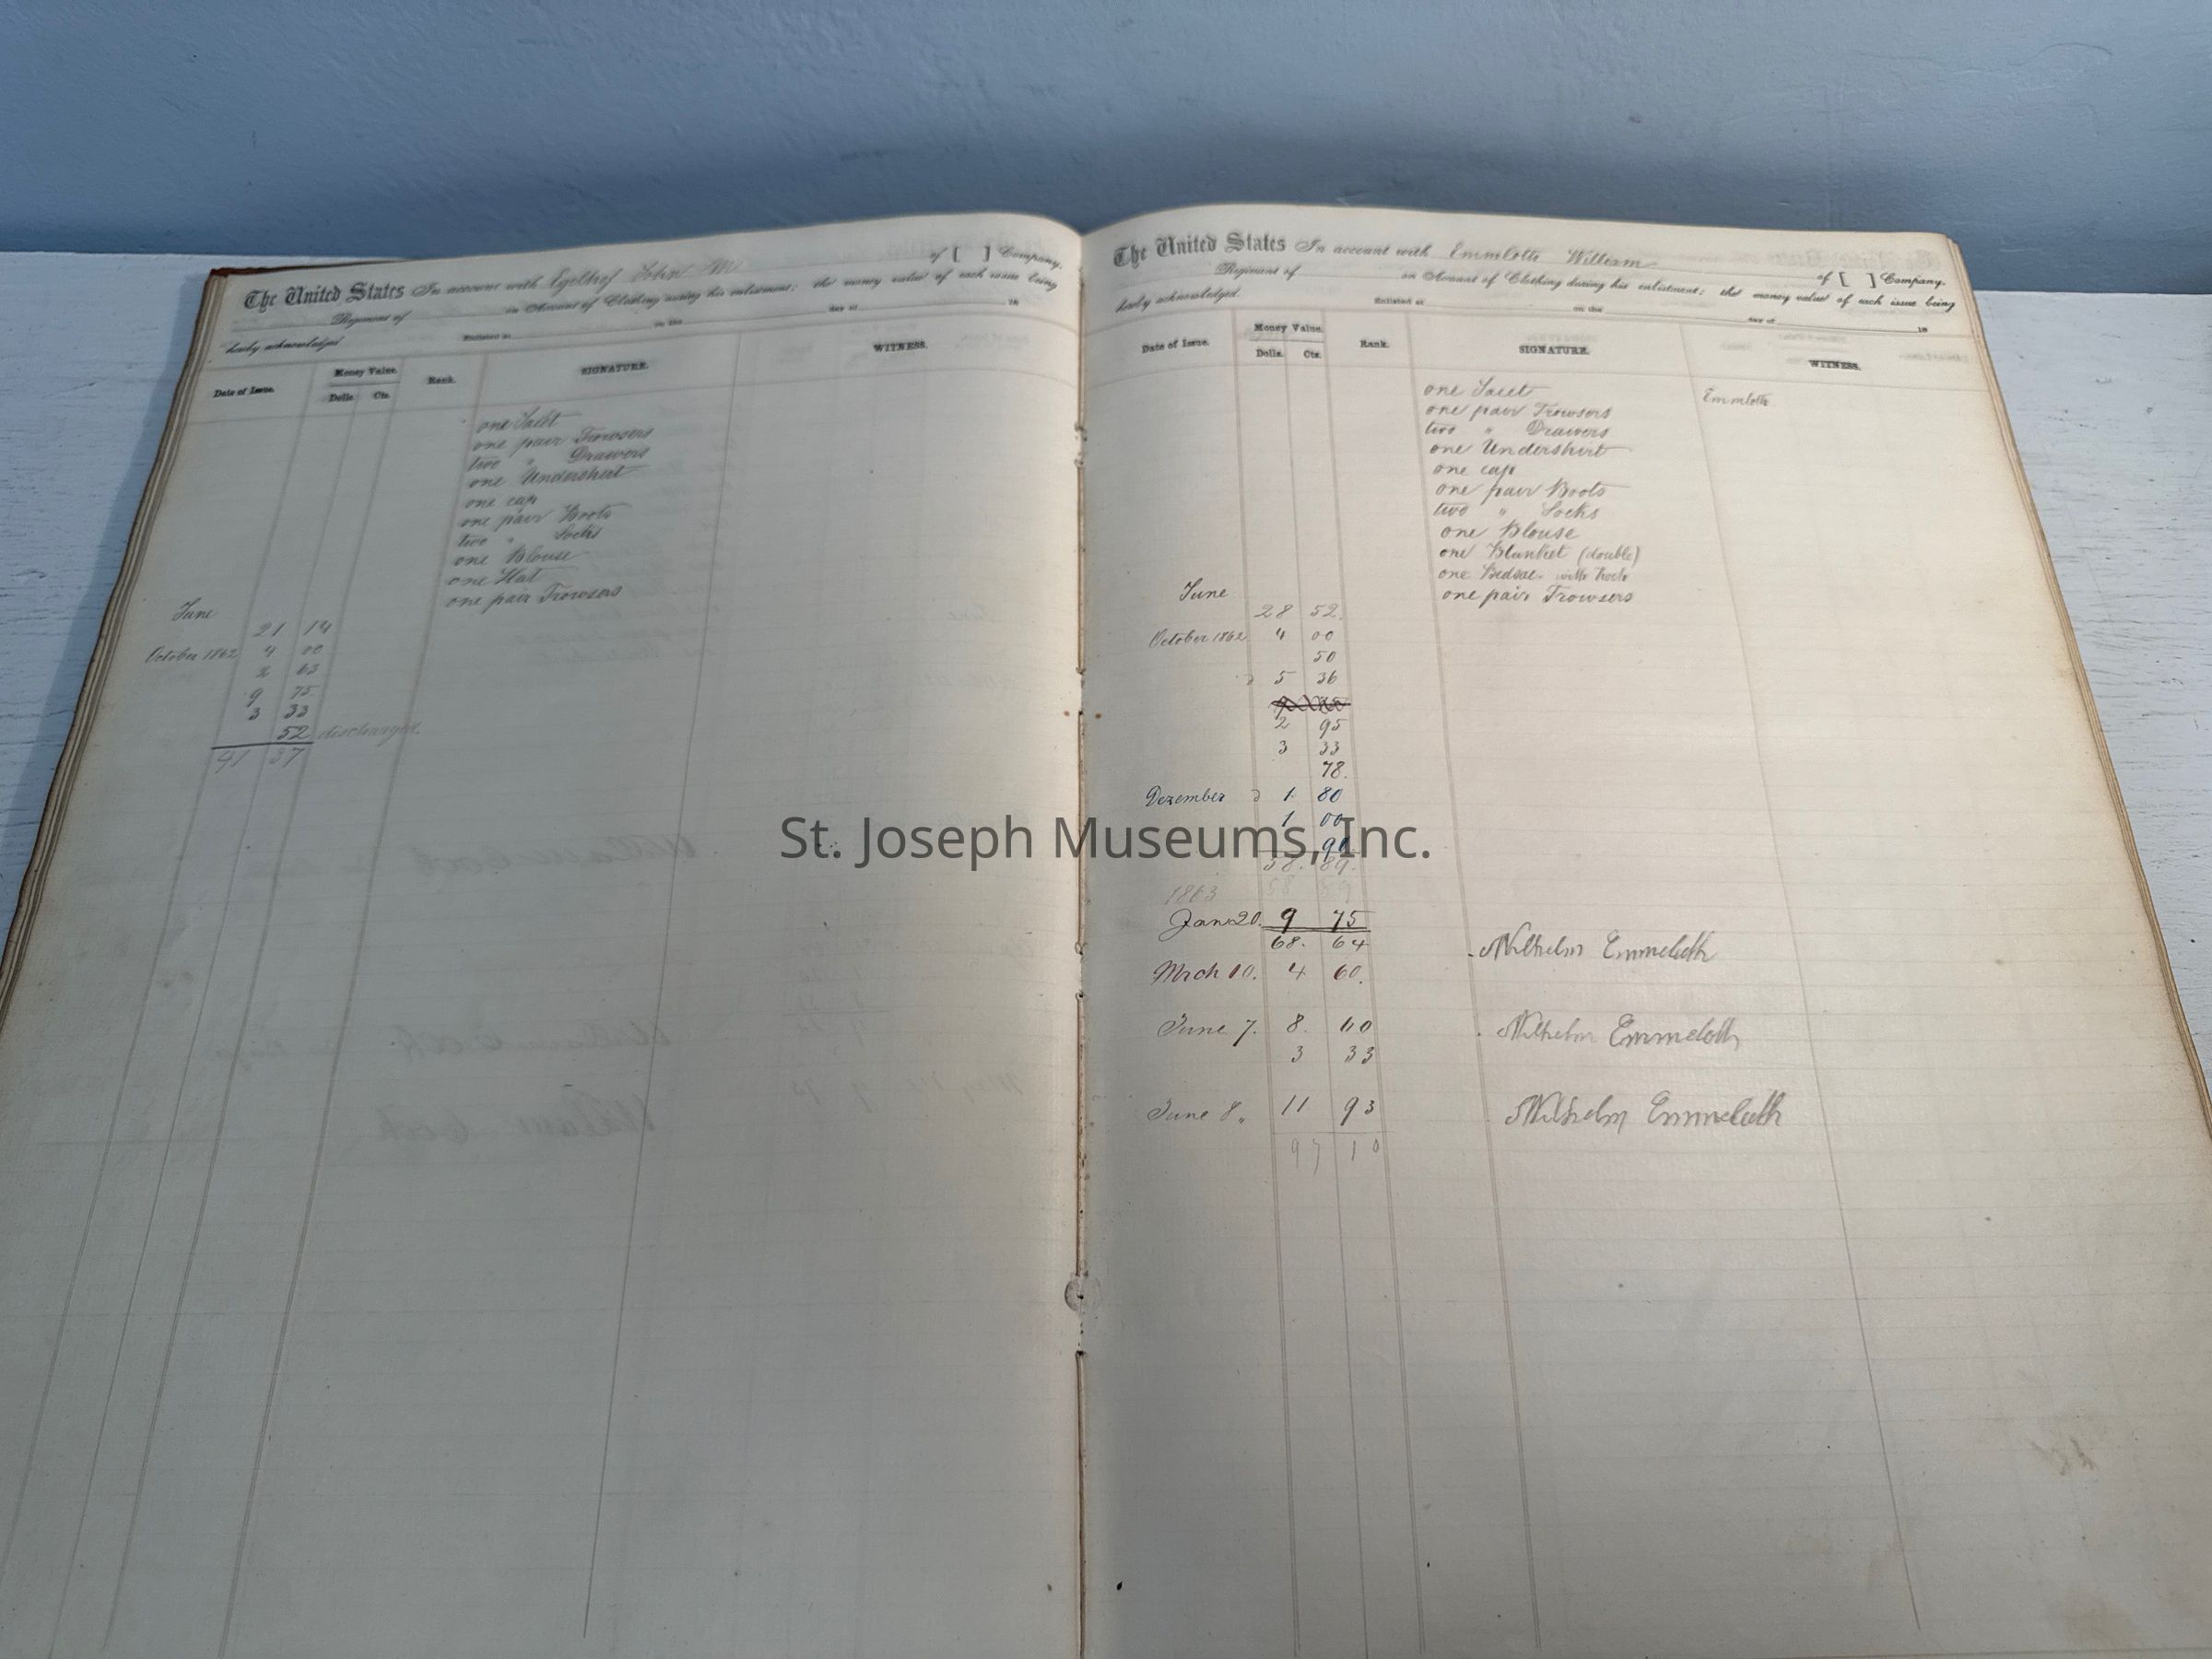 The United States In account with Egelhof John M
of [ ] Company.
Regiment of on Account of Clothing during his enlistment; the money value of each issue being
hereby acknowledged Enlisted at on the day of 18
Date of Issue. Money Value. Rank. SIGNATURE. WITNESS.
Dolls. Cts.
one
one pair Trowsers
two " Drawers
one Undershirt
one cap
one pair Boots
two " Socks
one Blouse
one Hat
one pair Trowsers
June
21 14
October 1862 4 00
2 63
9 75
3 33
52 discharged.
41 37
The United States In account with Emmlotte William
of [ ] Company.
Regiment of on Account of Clothing during his enlistment; the money value of each issue being
hereby acknowledged. Enlisted at on the day of 18
Date of Issue. Money Value. Rank. SIGNATURE. WITNESS.
Dolls. Cts.
one Emmloth
one pair Trowsers
two " Drawers
one Undershirt
one cap
one pair Boots
two " Socks
one Blouse
one Blanket (double)
one with
one pair Trowsers
June
28 52.
October 1862 4 00
50
5 36
2 95
3 33
78.
Dezember 1 80
1 00
90
58. 89.
1863 58 89
Jan 20. 9 75
68. 64
Wilhelm Emmeluth
Mrch 10. 4 60.
June 7. 8. 40
Wilhelm Emmeloth
3 33
June 8. 11 93
Wilhelm Emmeluth
97 10
St. Joseph Museums, Inc.